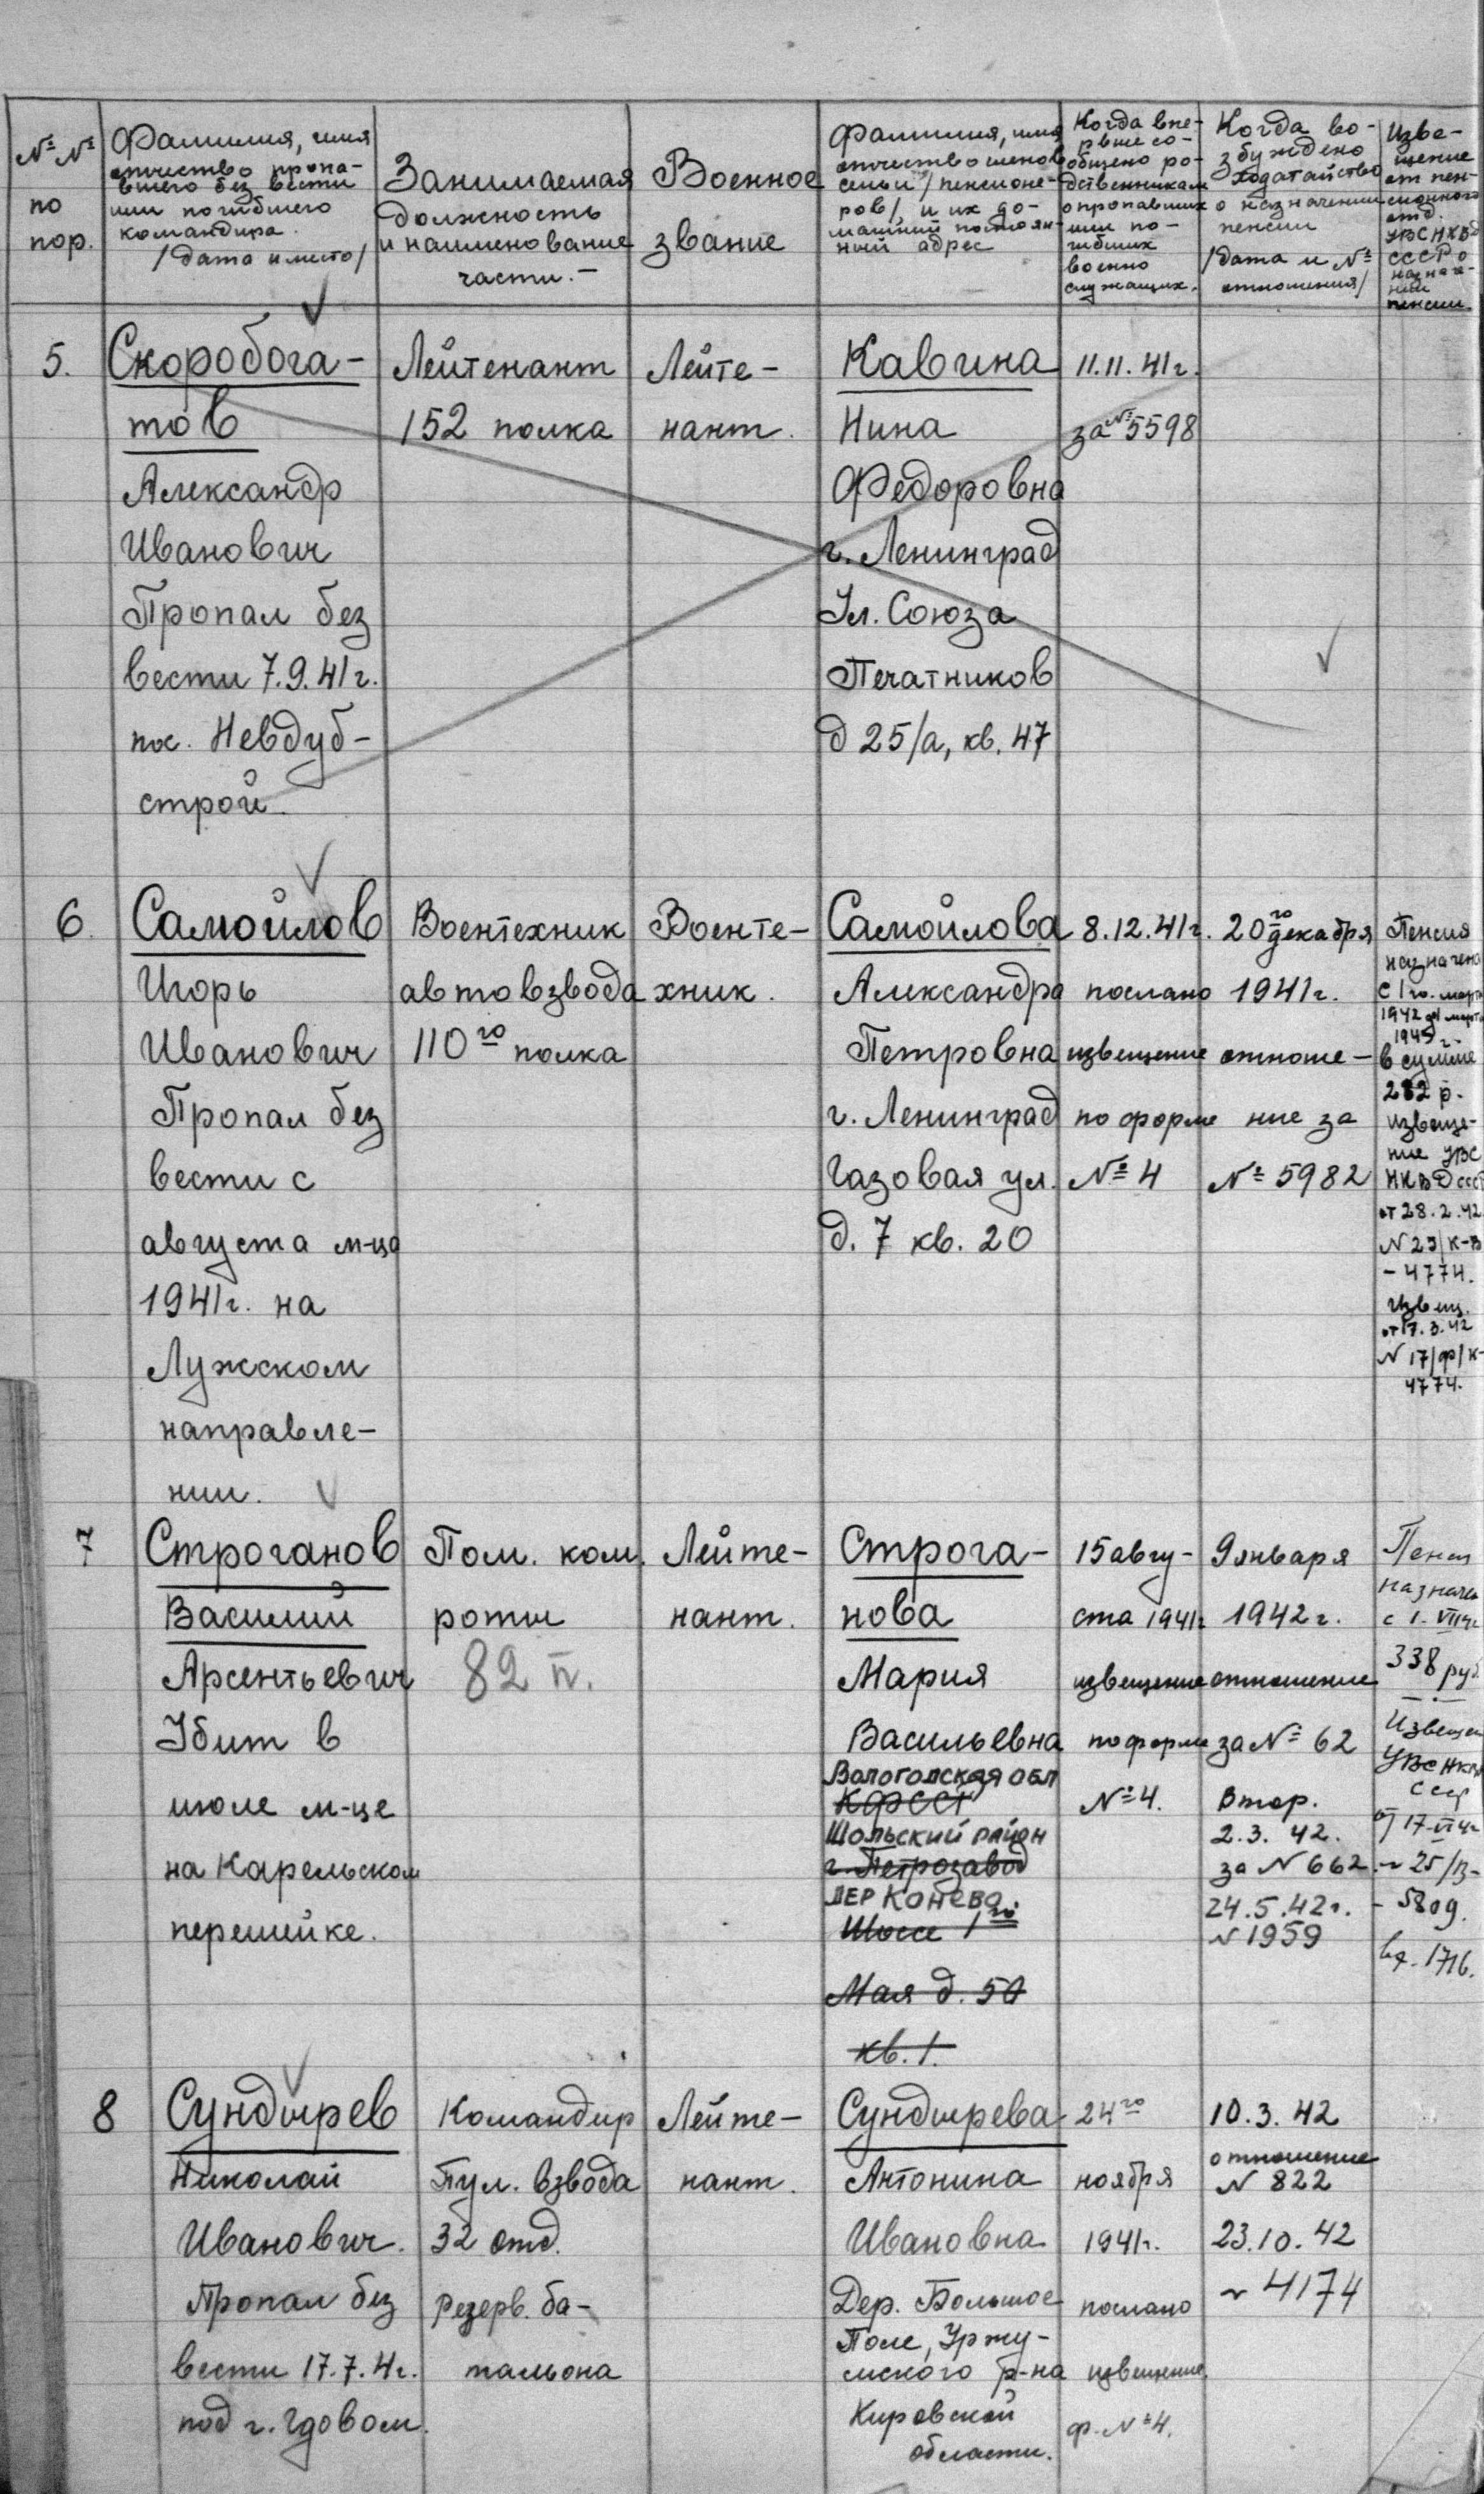 № №
по
пор.
Фамилия, имя
отчество пропа-
вшего без вести
или погибшего
командира.
/дата и место/
Занимаемая
должность
и наименование
части.-
Военное
звание
Фамилия, имя
отчество членов
семьи /пенсионе-
ров/, и их до-
машний постоян-
ный адрес
Когда впе-
рвые со-
общено ро-
дственникам
о пропавших
или по-
гибших
военно
служащих.
Когда во-
збуждено
ходатайство
о назначении
пенсии
/дата и №
отношения/
Изве-
щение
от пен-
сионного
отд.
УВС НКВД
СССР о
назначе-
нии
пенсии.
5.
Скоробога-
тов
Александр
Иванович
Пропал без
вести 7.9.41г.
пос. Невдуб-
строй.
Лейтенант
152 полка
Лейте-
нант.
Кавина
Нина
Федоровна
г. Ленинград
Ул. Союза
Печатников
д 25/а, кв. 47
11.11.41г.
за № 5598
6.
Самойлов
Игорь
Иванович
Пропал без
вести с
августа м-ца
1941г. на
Лужском
направле-
нии.
Воентехник
автовзвода
110го полка
Военте-
хник.
Самойлова
Александра
Петровна
г. Ленинград
Газовая ул.
д. 7 кв. 20
8.12.41г.
послано
извещение
по форме
№ 4
20го декабря
1941г.
отноше-
ние за
№ 5982
Пенсия
назначена
с 1го марта
1942 до марта
1945 г.
в сумме
282 р.
извеще-
ние УВС
НКВД СССР
от 28.2.42
N 25/К-В
- 4774.
Извещ.
от 17.3.42
N 17/ф/К-
4774.
7
Строганов
Василий
Арсентьевич
Убит в
июле м-це
на Карельском
перешейке.
Пом. ком.
роты
82 п.
Лейте-
нант.
Строга-
нова
Мария
Васильевна
Вологодская обл
КФССР
Шольский район
г. Петрозавод
дер Конева
Шоссе 1го
Мая д. 50
кв. 1.
15 авгу-
ста 1941г
извещение
по форме
№ 4.
9 января
1942г.
отношение
за № 62
Втор.
2.3.42.
за N 662.
24.5.42г.
N 1959
Пенси
назначен
с 1.VII 41
338 руб
Извещен
УВС НКВД
СССР
от 17-VI 42
N 25/В-
- 5809.
вх. 1716.
8
Сундырев
Николай
Иванович.
Пропал без
вести 17.7.41г.
под г. Гдовом.
Командир
Пул. взвода
32 отд.
резерв. ба-
тальона
Лейте-
нант.
Сундырева
Антонина
Ивановна
Дер. Большое
Поле, Уржу-
мского р-на
Кировской
области.
24го
ноября
1941г.
послано
извещение.
ф. № 4.
10.3.42
отношение
N 822
23.10.42
N 4174